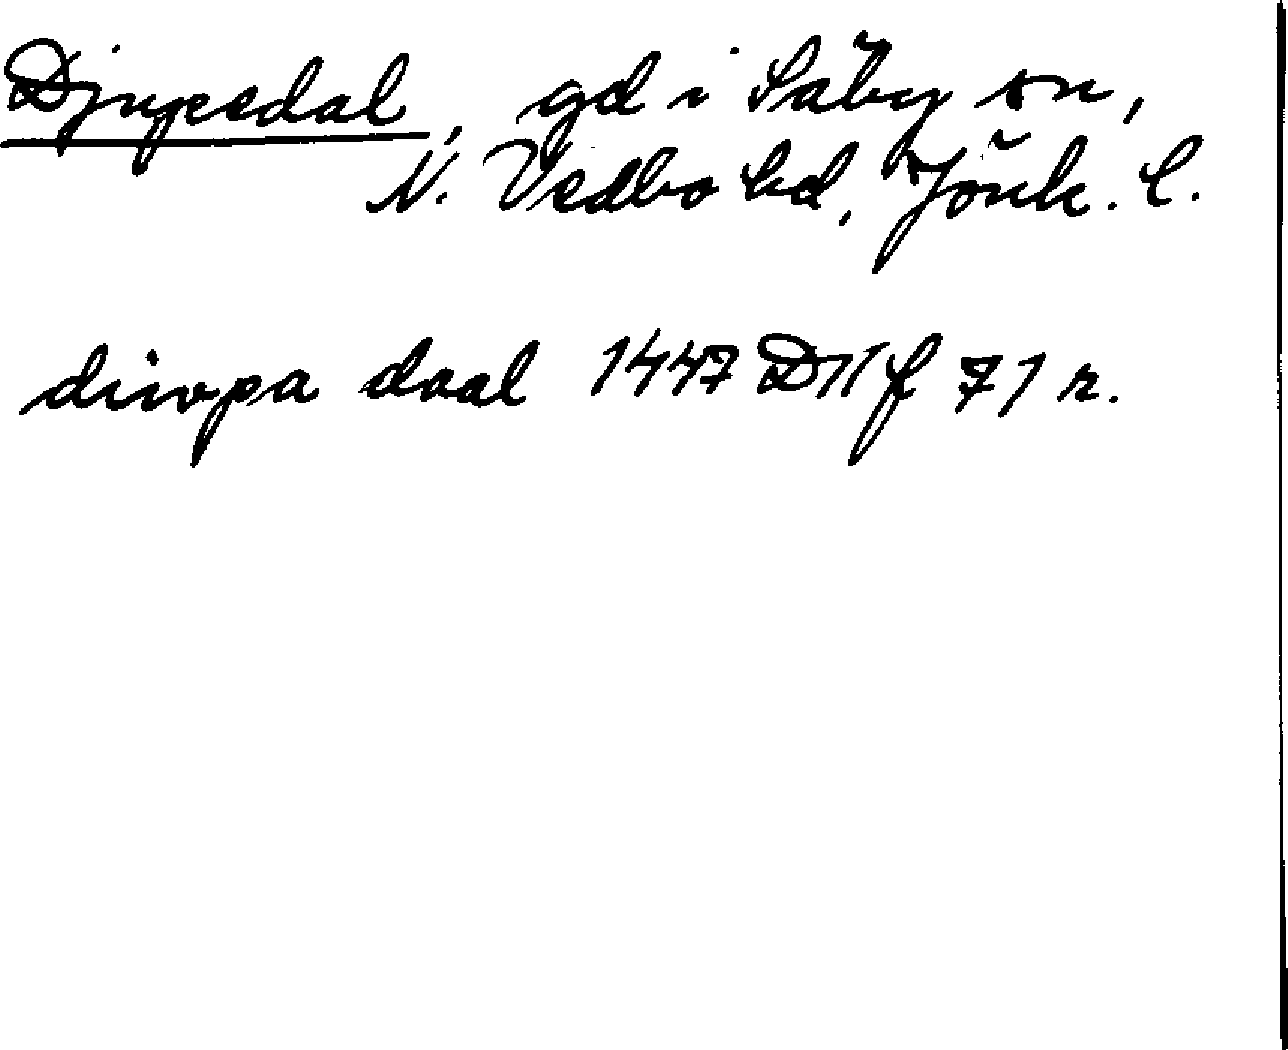 Djupesdal, gd i Säby sn,
N. Vedbo hd, Jönk. l.
diwpa daal 1447 D 11 f 71 r.